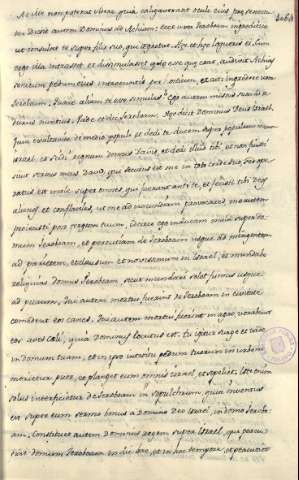 At ille non poterat videre quia caligaverant oculi eius præ senectu
te dixit autem Dominus ad Achiam: Ecce uxor Jeroboam ingreditur
ut consulat te super filio suo, qui ægrotat. Hæc et hæc loqueris ei. Cum
ergo illa intrasset et dissimularet se esse quæ erat, audivit Achias
sonitum pedum eius introeuntis per ostium, et ait: Ingredere uxor
Jeroboam: Quare aliam te esse simulas? Ego autem missus sum ad te
durus nuntius. Vade et dic Jeroboam: Hæc dicit Dominus Deus Israel,
Quia exaltavi te de medio populi et dedi te ducem super populum meum
Israel, et scidi regnum domus David, et dedi illud tibi, et non fuisti
sicut servus meus David, qui secutus est me in toto corde suo, sed ope
ratus est mala super omnes, qui fuerunt ante te, et fecisti tibi Deos
alienos et conflatiles, ut me ad iracundiam provocares, me autem
proiecisti post tergum tuum, idcirco ego inducam mala super do
mum Jeroboam, et percutiam de Jeroboam usque ad mingentem
ad parietem, et clausum et novissimum in Israel, et mundabo
reliquias domus Jeroboam sicut mundari solet fimus usque
ad purum, Qui autem mortui fuerint de Jeroboam in civitate
comedent eos canes. Qui autem mortui fuerint in agro, vorabunt
eos aves cœli, quia Dominus locutus est. Tu igitur surge et vade
in domum tuam, et in ipso introitu pedum tuorum in urbem
morietur puer, et planget eum omnis Israel, et sepeliet. Iste enim
solus inferetur de Jeroboam in sepulchrum, quia inventus
est super eum sermo bonus a Domino Deo Israel, in domo Jerobo
am. Constituet autem Dominus regem super Israel, qui percu
tiat domum Jeroboam in die hac, et in hoc tempore, et percutiet